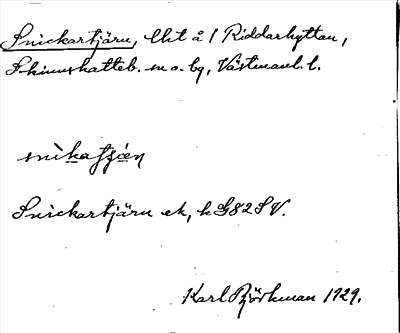 Snickartjärn, lht å 1 Riddarhyttan,
Skinnskatteb. sn o. bg, Västmanl. l.
snikaʃæ̨n
Snickartjärn ek, k G82 SV.
Karl Björkman 1929.